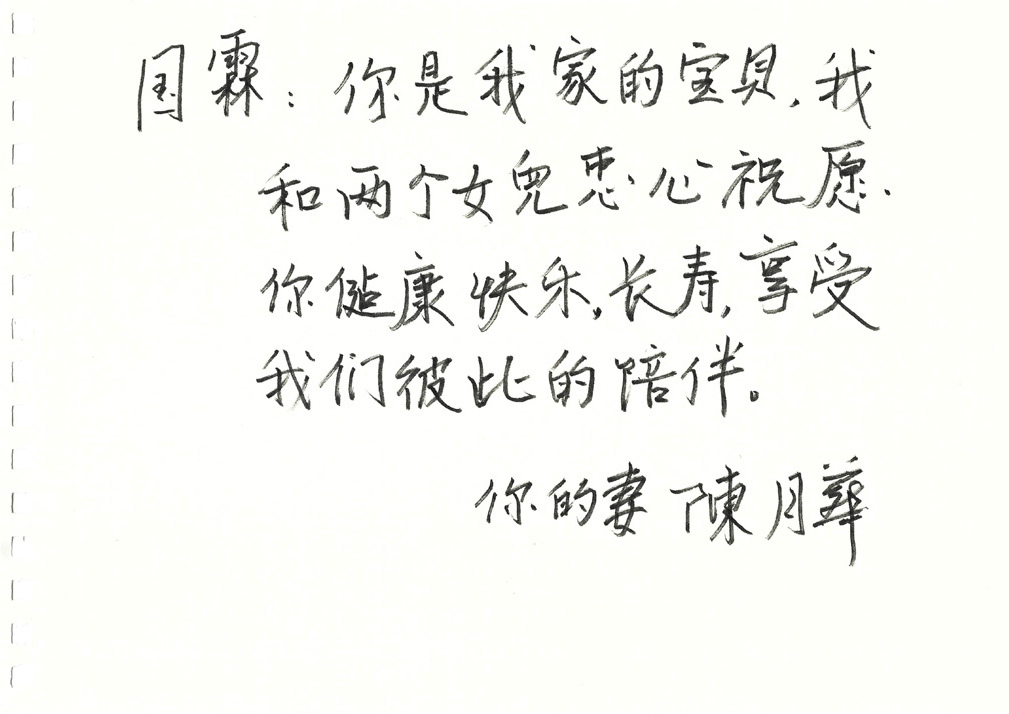 国霖：你是我家的宝贝，我
和两个女兒忠心祝愿
你健康快乐，长寿，享受
我们彼此的陪伴。
你的妻 陳月華